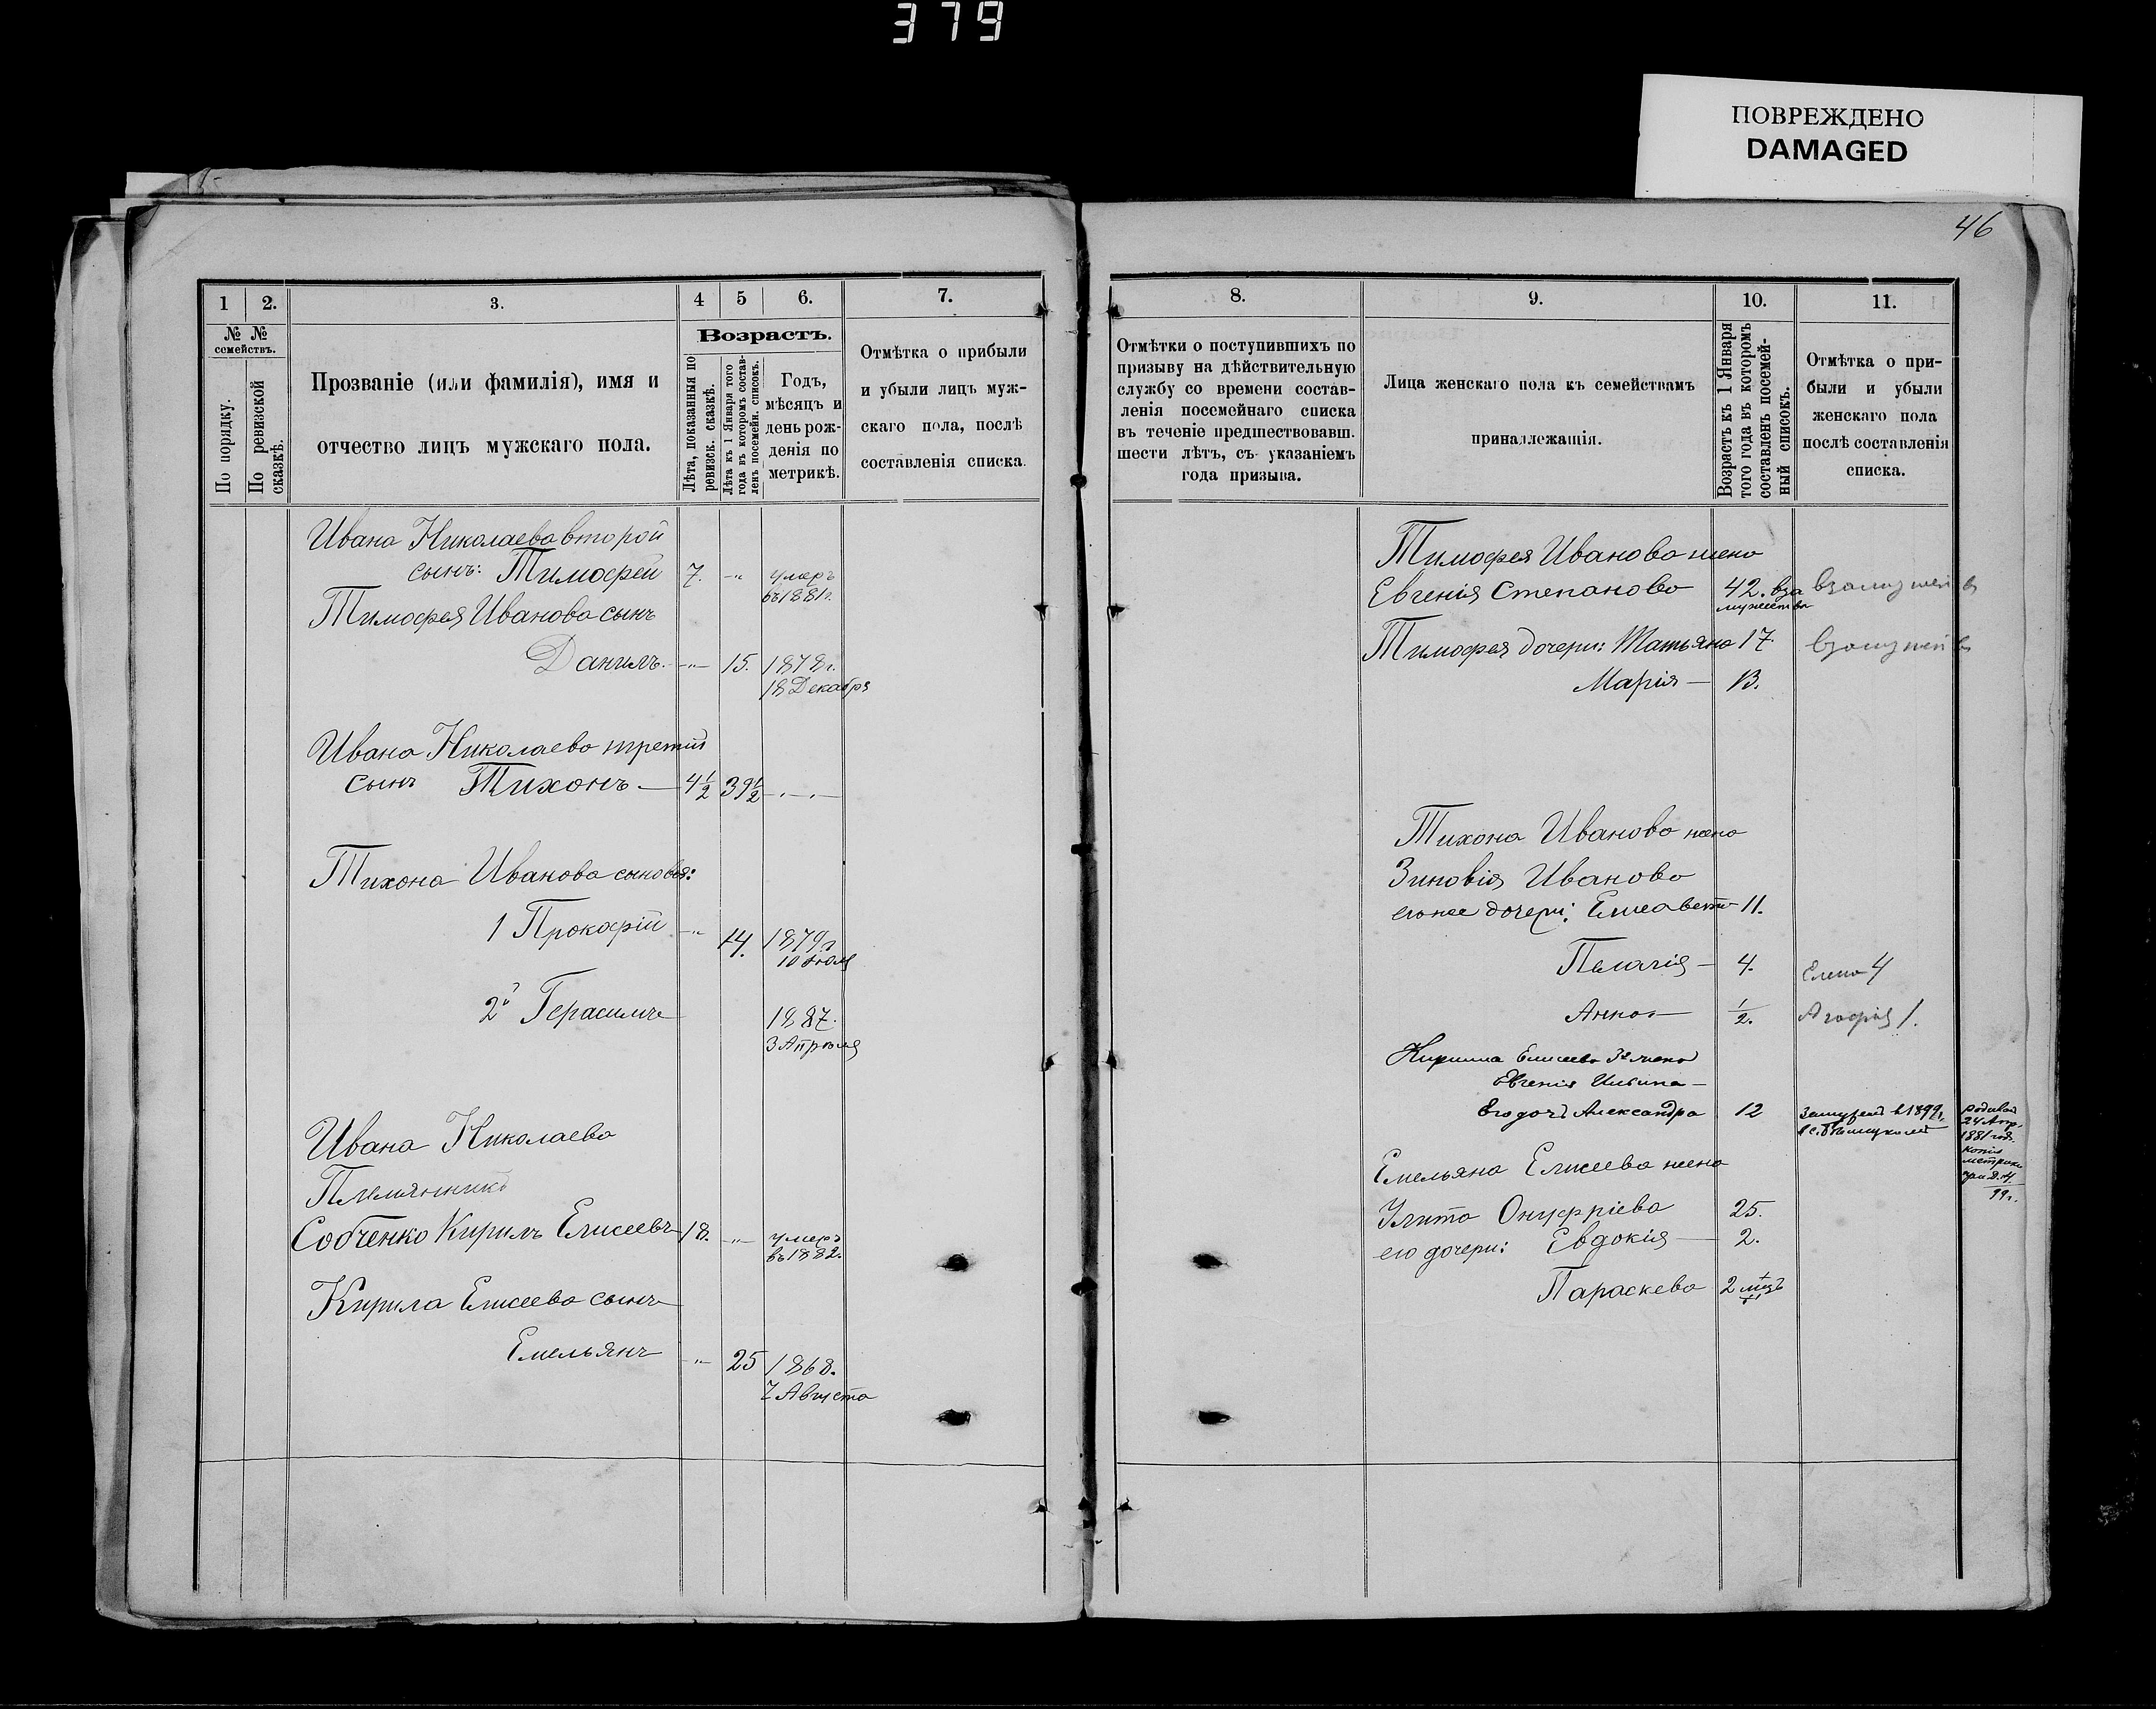 379
ПОВРЕЖДЕНО
DAMAGED
46
1 2. 3. 4 5 6. 7.
№ №
семействъ.
По порядку.
По ревизской
сказкѣ.
Прозваніе (или фамилія), имя и
отчество лицъ мужскаго пола.
Возрастъ.
Лѣта, показанныя по
ревизск. сказкѣ.
Лѣта къ 1 Января того
года въ которомъ состав-
ленъ посемейн. списокъ.
Годъ,
мѣсяцъ и
день рож-
денія по
метрикѣ.
Отмѣтка о прибыли
и убыли лицъ муж-
скаго пола, послѣ
составленія списка.
Ивана Николаева второй
сынъ: Тимофей 7. -"- умеръ
въ 1881г.
Тимофея Иванова сынъ
Данилъ. -"- 15. 1878г.
18 Декабря
Ивана Николаева третий
сынъ Тихонъ. — 4½ 39½ -.-.-
Тихона Иванова сыновья:
1 Прокофій -"- 14. 1879г
10 Июля
2й Герасимъ 1887.
3 Апрѣля
Ивана Николаева
Племянникъ
Собченко Кирилъ Елисеевъ 18. -"- умеръ
въ 1882.
Кирила Елисеева сынъ
Емельянъ -"- 25 1868.
7 Августа
8. 9. 10. 11.
Отмѣтки о поступившихъ по
призыву на дѣйствительную
службу со времени состав-
ленія посемейнаго списка
въ теченіе предшествовавш.
шести лѣтъ, съ указаніемъ
года призыва.
Лица женскаго пола къ семействамъ
принадлежащія.
Возрастъ къ 1 Января
того года въ которомъ
составленъ посемей-
ный списокъ.
Отмѣтка о при-
были и убыли
женскаго пола
послѣ составленія
списка.
Тимофея Иванова жена
Евгенія Степанова 42.
Тимофея дочери: Татьяна 17
Марія — 13.
Тихона Иванова жена
Зиновія Иванова
его же дочери: Елисавета 11.
Пелагія — 4. Елена 4
Анна — ½. Агафія 1.
Кирилла Елисеева 3я жена
Евгенія Ильина —
Его дочь Александра 12 замужемъ въ 1899г.
родилась
24 Апр.
1881 год.
копія
метрики
при д. 4
99г.
Емельяна Елисеева жена
Улита Онуфріева 25.
его дочери: Евдокія — 2.
Параскева 2 мцъ